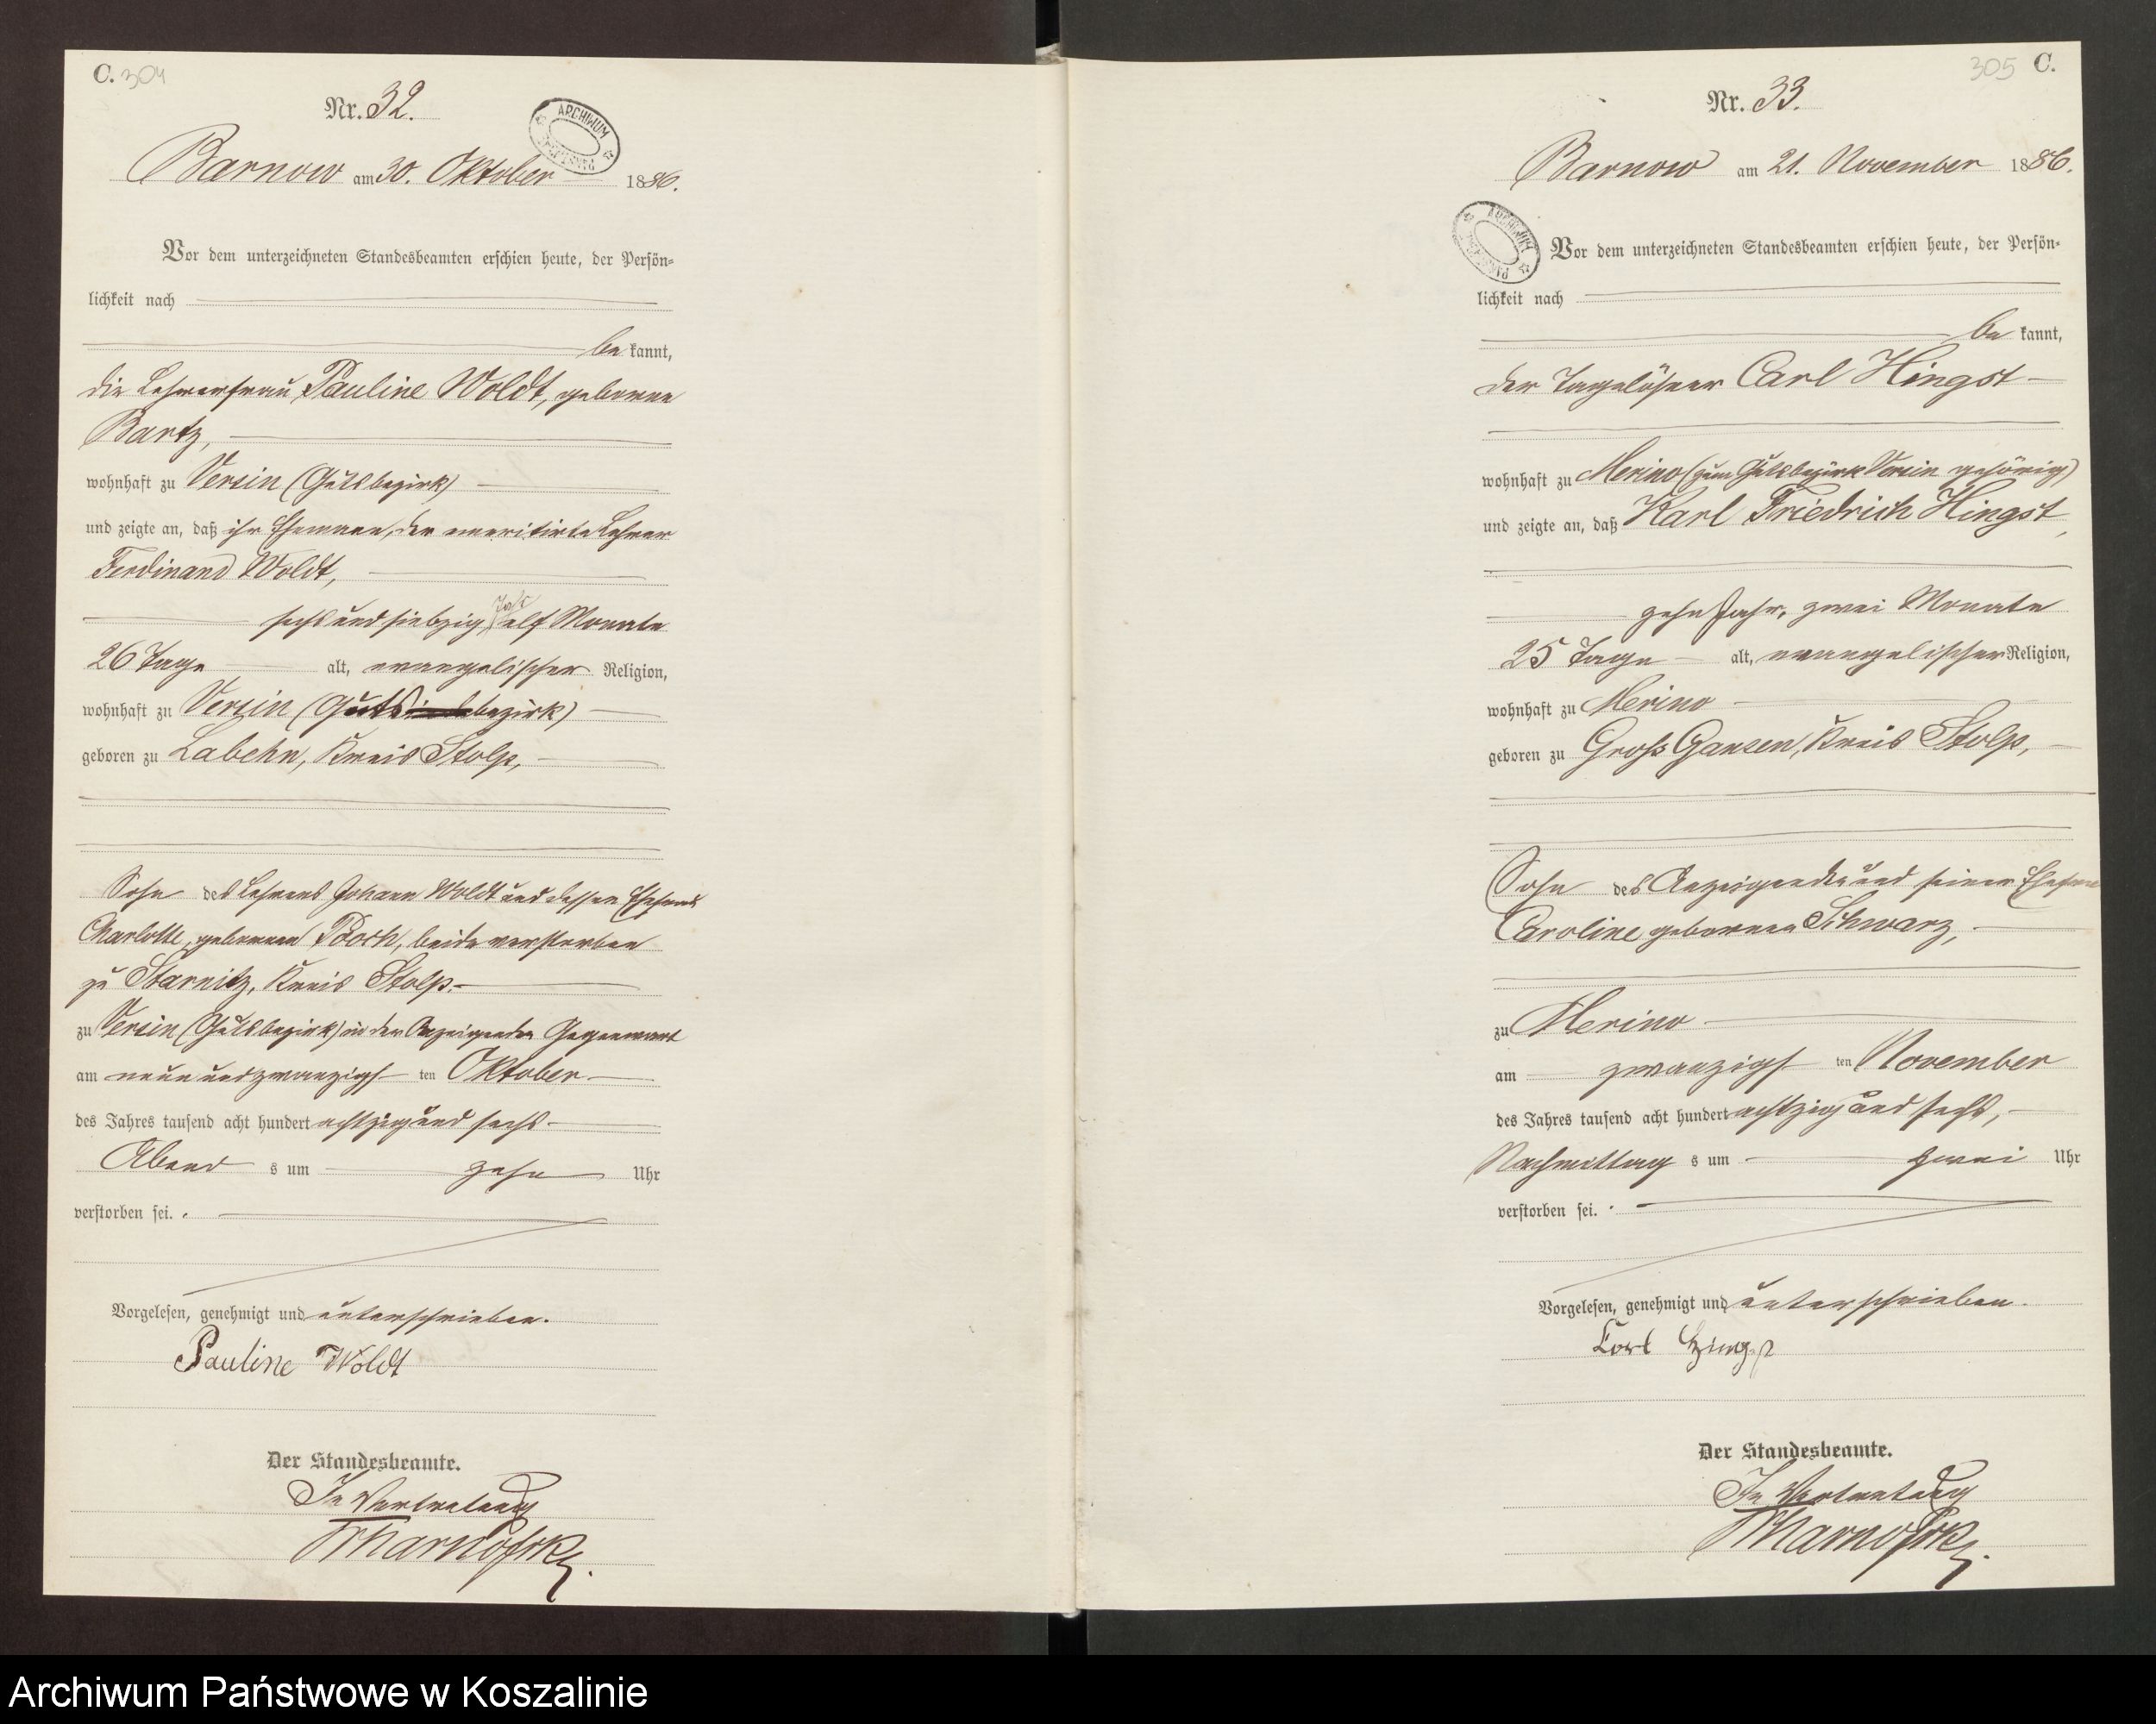 C. 304
Nr. 32.
ARCHIWUM
Barnow am 30. Oktober 1886.
Vor dem unterzeichneten Standesbeamten erschien heute, der Persön-
lichkeit nach
be kannt,
die Lehrerfrau Pauline Woldt, geborene
Bartz,
wohnhaft zu Versin (Gutsbezirk)
und zeigte an, daß ihr Ehemann, der emeritirte Lehrer
Ferdinand Woldt,
sechs und siebzig Jahr elf Monate
26 Tage alt, evangelischer Religion,
wohnhaft zu Versin (Gutsbezirk)
geboren zu Labehn, Kreis Stolp,
Sohn des Lehrers Johann Woldt und dessen Ehefrau
Charlotte, geborenen Pooch, beide verstorben
zu Starnitz, Kreis Stolp.
zu Versin (Gutsbezirk) in der Anzeigenden Gegenwart
am neun und zwanzigs ten Oktober
des Jahres tausend acht hundert achtzig und sechs
Abend s um zehn Uhr
verstorben sei.
Vorgelesen, genehmigt und unterschrieben.
Pauline Woldt
Der Standesbeamte.
In Vertretung
305 C.
Nr. 33.
Barnow am 21. November 1886.
ARCHIWUM
Vor dem unterzeichneten Standesbeamten erschien heute, der Persön-
lichkeit nach
be kannt,
der Tagelöhner Carl Hingst
wohnhaft zu Merino (zum Gutsbezirk Versin gehörig)
und zeigte an, daß Karl Friedrich Hingst,
zehn Jahr, zwei Monate
25 Tage alt, evangelischer Religion,
wohnhaft zu Merino
geboren zu Groß Gansen, Kreis Stolp,
Sohn des Anzeigenden und seiner Ehefrau
Caroline geborenen Schwarz,
zu Merino
am zwanzigs ten November
des Jahres tausend acht hundert achtzig und sechs,
Nachmittag s um zwei Uhr
verstorben sei.
Vorgelesen, genehmigt und unterschrieben.
Carl Hingst
Der Standesbeamte.
In Vertretung
Archiwum Państwowe w Koszalinie